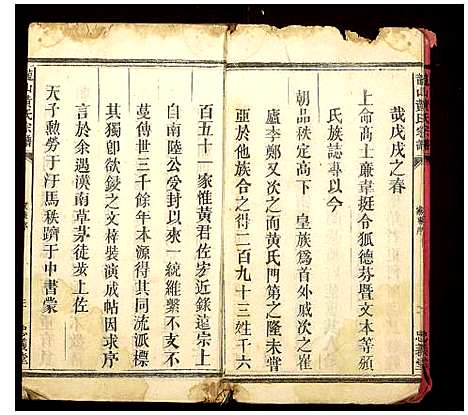 龍山黃氏宗譜
哉戊戌之春
上命高士廉韋挺令狐德芬暨文本等頒
氏族誌專以今
朝品秩定高下　皇族爲首外戚次之崔
盧李鄭又次之而黃氏門第之隆未嘗
亞於他族合之得二百九十三姓千六
忠義堂
百五十一家惟黃君佐宏近錄遠宗上
自南陸公受封以來一統維繫不支不
蔓傳世三千餘年本源得其同流派標
其獨卽欲鋟之文梓裝演成帖因求序
言於余遇漢南草茅徒步上佐
天子勳勞于汗馬秩躋于中書蒙
龍山黃氏宗譜
忠義堂